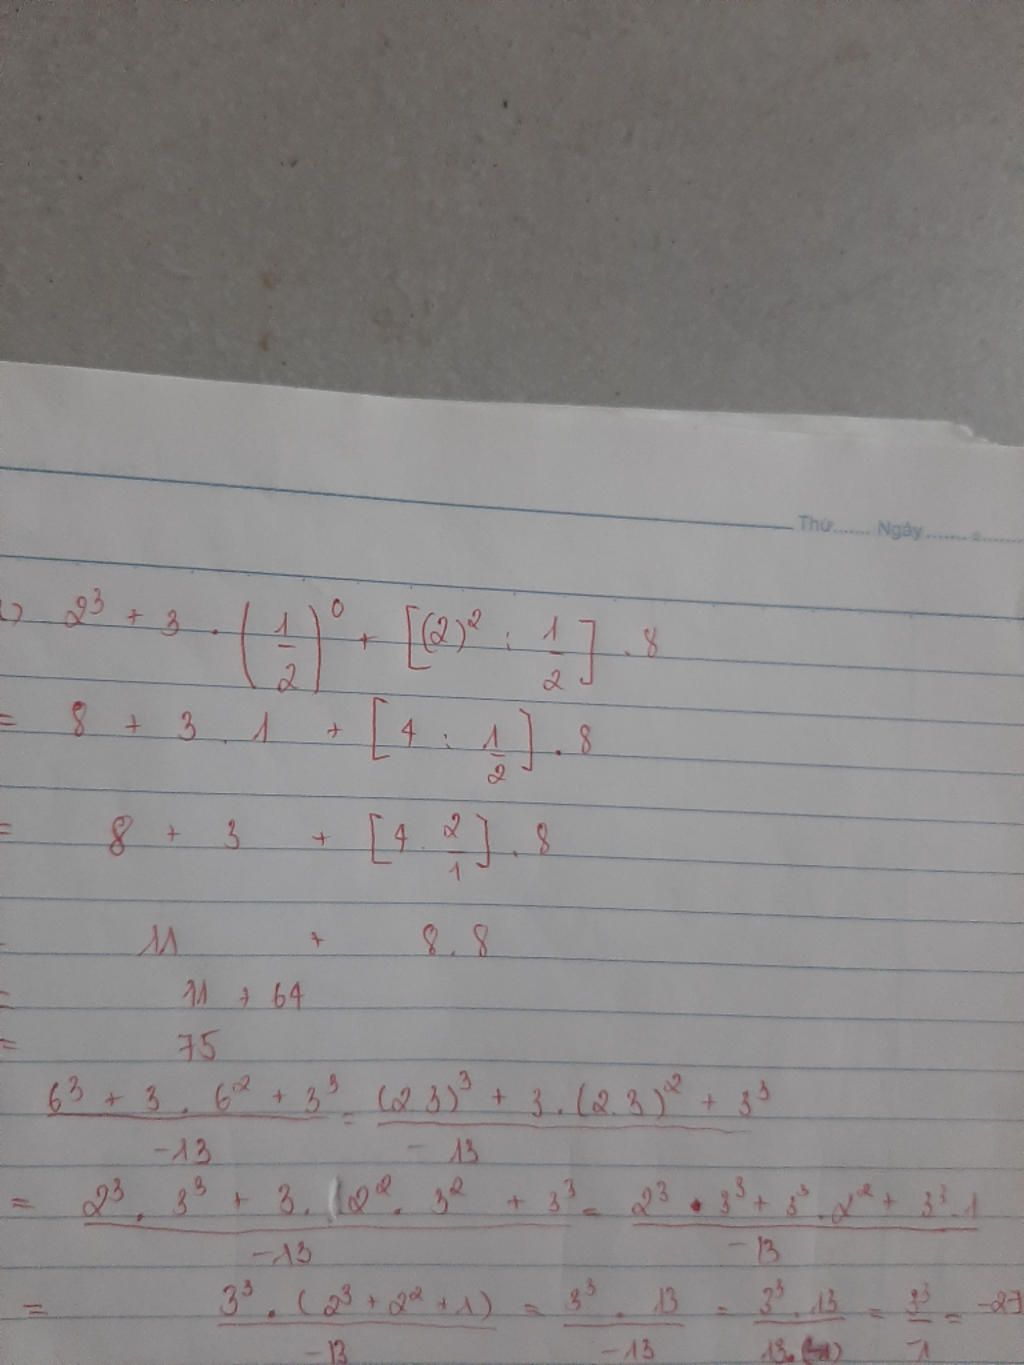 Thứ....... Ngày.......
2³ + 3 . (1/2)⁰ + [(2)² : 1/2] . 8
= 8 + 3 . 1 + [4 : 1/2] . 8
= 8 + 3 + [4 . 2/1] . 8
11 + 8 . 8
= 11 + 64
= 75
(6³ + 3 . 6² + 3³)/-13 = ((2.3)³ + 3 . (2.3)² + 3³)/-13
= (2³ . 3³ + 3 . 2² . 3² + 3³)/-13 = (2³ . 3³ + 3³ . 2² + 3³ . 1)/-13
= (3³ . (2³ + 2² + 1))/-13 = (3³ . 13)/-13 = (3³ . 13)/(13.(-1)) = 3³/-1 = -27